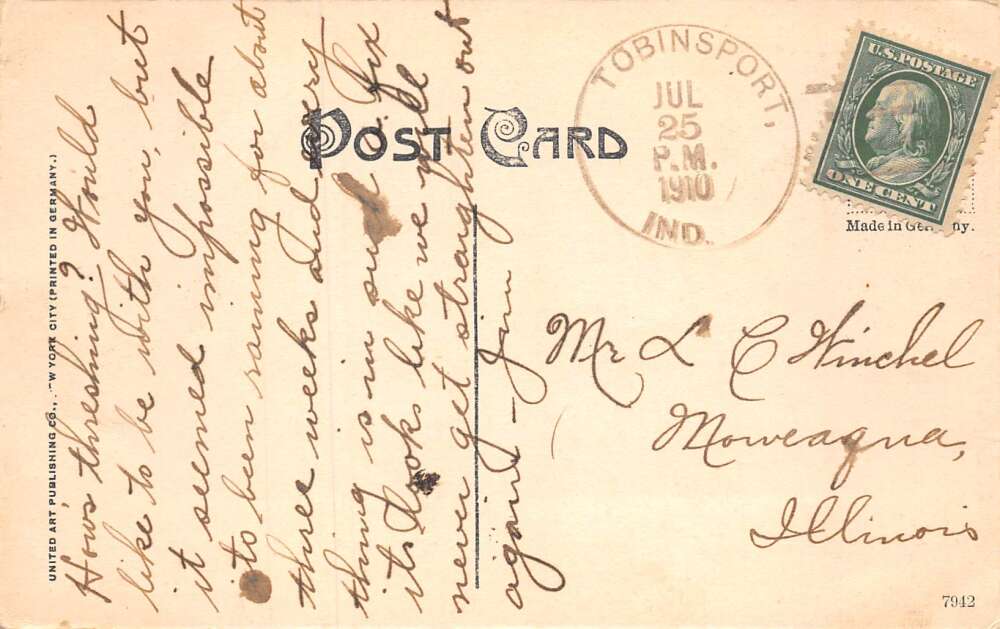 POST CARD
TOBINSPORT,
JUL
25
P.M.
1910
IND.
U.S. POSTAGE
ONE CENT
Made in Ger ny.
UNITED ART PUBLISHING CO., W YORK CITY (PRINTED IN GERMANY.)
How's threshing? Would
like to be with you, but
it seemed impossible
its been raining for about
three weeks and every
thing is in such a fix
its looks like we will
never get straighten out
again - Jim
Mr L C Winchel
Moweaqua,
Illinois
7942